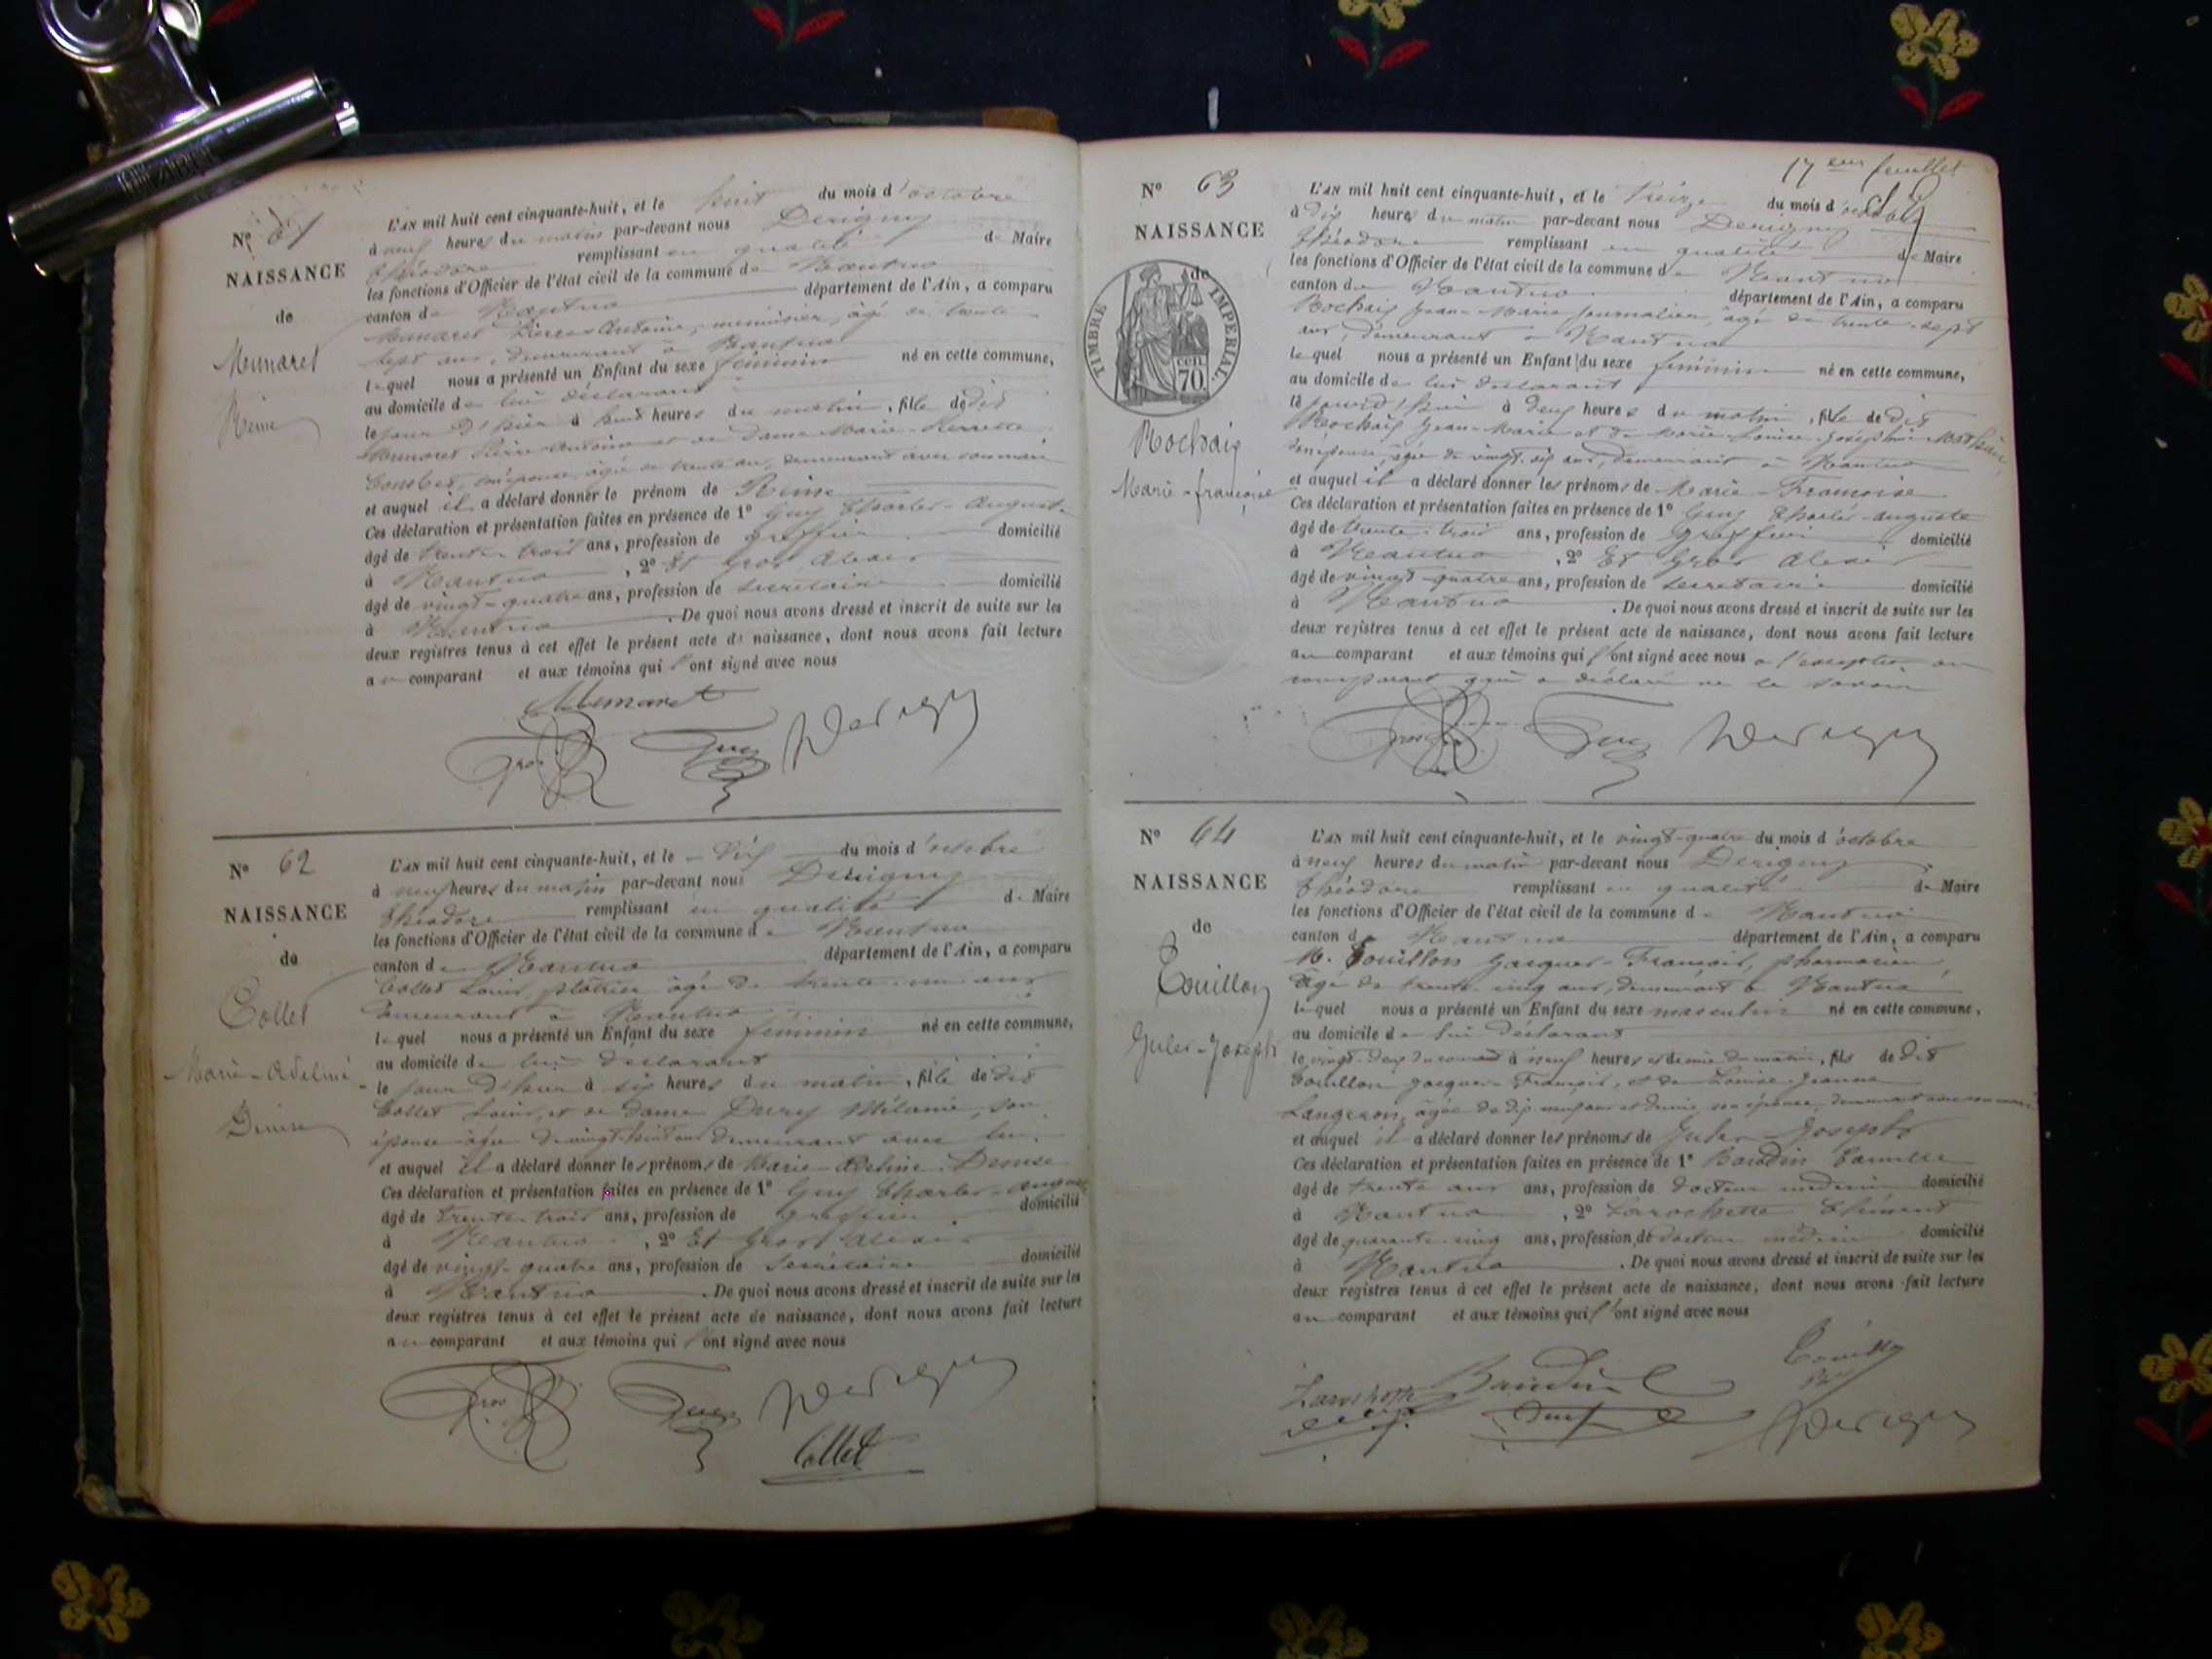 Nº 61
NAISSANCE
de
Munaret
Reine
L'AN mil huit cent cinquante-huit, et le huit du mois d'octobre
à neuf heures du matin par-devant nous Derigny
Théodore remplissant en qualité de Maire
les fonctions d'Officier de l'état civil de la commune de Nantua
canton de Nantua département de l'Ain, a comparu
Munaret Pierre-Antoine, menuisier, âgé de trente
sept ans, demeurant à Nantua
lequel nous a présenté un Enfant du sexe féminin né en cette commune,
au domicile de lui déclarant
le jour d'hier à heures du matin, fille de dit
Munaret Pierre-Antoine et de dame Marie-Pierrette
son épouse, âgée de trente ans, demeurant avec son mari
et auquel il a déclaré donner le prénom de Reine
Ces déclaration et présentation faites en présence de 1º Guy Charles-Auguste
âgé de trente-trois ans, profession de greffier domicilié
à Nantua, 2º Et Gros Alexis
âgé de vingt-quatre ans, profession de secrétaire domicilié
à Nantua. De quoi nous avons dressé et inscrit de suite sur les
deux registres tenus à cet effet le présent acte de naissance, dont nous avons fait lecture
au comparant et aux témoins qui l'ont signé avec nous
Munaret
Gros Guy Derigny
Nº 62
NAISSANCE
de
Collet
Marie-Adeline
Denise
L'AN mil huit cent cinquante-huit, et le dix du mois d'octobre
à neuf heures du matin par-devant nous Derigny
Théodore remplissant en qualité de Maire
les fonctions d'Officier de l'état civil de la commune de Nantua
canton de Nantua département de l'Ain, a comparu
Collet Louis, plâtrier âgé de trente-un ans
demeurant à Nantua
lequel nous a présenté un Enfant du sexe féminin né en cette commune,
au domicile de lui déclarant
le jour d'hier à six heures du matin, fille de dit
Collet Louis, et de dame Mélanie, son
épouse âgée de vingt-huit ans demeurant avec lui
et auquel il a déclaré donner les prénoms de Marie-Adeline-Denise
Ces déclaration et présentation faites en présence de 1º Guy Charles-Auguste
âgé de trente-trois ans, profession de greffier domicilié
à Nantua, 2º Et Gros Alexis
âgé de vingt-quatre ans, profession de secrétaire domicilié
à Nantua. De quoi nous avons dressé et inscrit de suite sur les
deux registres tenus à cet effet le présent acte de naissance, dont nous avons fait lecture
au comparant et aux témoins qui l'ont signé avec nous
Gros Guy Derigny
Collet
17 eme feuillet
Nº 63
NAISSANCE
de
TIMBRE IMPERIAL.
70 cen
Rochaix
Marie-françoise
L'AN mil huit cent cinquante-huit, et le treize du mois d'octobre
à dix heures du matin par-devant nous Derigny
Théodore remplissant en qualité de Maire
les fonctions d'Officier de l'état civil de la commune de Nantua
canton de Nantua département de l'Ain, a comparu
Rochaix Jean-Marie journalier, âgé de trente-sept
ans, demeurant à Nantua
lequel nous a présenté un Enfant du sexe féminin né en cette commune,
au domicile de lui déclarant
le jourd'hui à deux heures du matin, fille de dit
Rochaix Jean-Marie et de Marie-Louise-Joséphine
son épouse, âgée de vingt-six ans, demeurant à Nantua
et auquel il a déclaré donner les prénoms de Marie-Françoise
Ces déclaration et présentation faites en présence de 1º Guy Charles-Auguste
âgé de trente-trois ans, profession de greffier domicilié
à Nantua, 2º Et Gros Alexis
âgé de vingt-quatre ans, profession de secrétaire domicilié
à Nantua. De quoi nous avons dressé et inscrit de suite sur les
deux registres tenus à cet effet le présent acte de naissance, dont nous avons fait lecture
au comparant et aux témoins qui l'ont signé avec nous à l'exception du
comparant qui a déclaré ne le savoir
Gros Guy Derigny
Nº 64
NAISSANCE
de
Touillon
Jules-Joseph
L'AN mil huit cent cinquante-huit, et le vingt-quatre du mois d'octobre
à neuf heures du matin par-devant nous Derigny
Théodore remplissant en qualité de Maire
les fonctions d'Officier de l'état civil de la commune de Nantua
canton de Nantua département de l'Ain, a comparu
M. Touillon Jacques-François, pharmacien,
âgé de trente-cinq ans, demeurant à Nantua
lequel nous a présenté un Enfant du sexe masculin né en cette commune,
au domicile de lui déclarant
le vingt-deux du courant à neuf heures et demie du matin, fils de dit
Touillon Jacques-François, et de Louise-Jeanne
Langeron, âgée de dix-neuf ans et demi, son épouse, demeurant avec son mari
et auquel il a déclaré donner les prénoms de Jules-Joseph
Ces déclaration et présentation faites en présence de 1º Baudin Camille
âgé de trente ans ans, profession de docteur médecin domicilié
à Nantua, 2º Larochette Clément
âgé de quarante-cinq ans, profession de docteur médecin domicilié
à Nantua. De quoi nous avons dressé et inscrit de suite sur les
deux registres tenus à cet effet le présent acte de naissance, dont nous avons fait lecture
au comparant et aux témoins qui l'ont signé avec nous
Larochette Baudin Touillon
Derigny